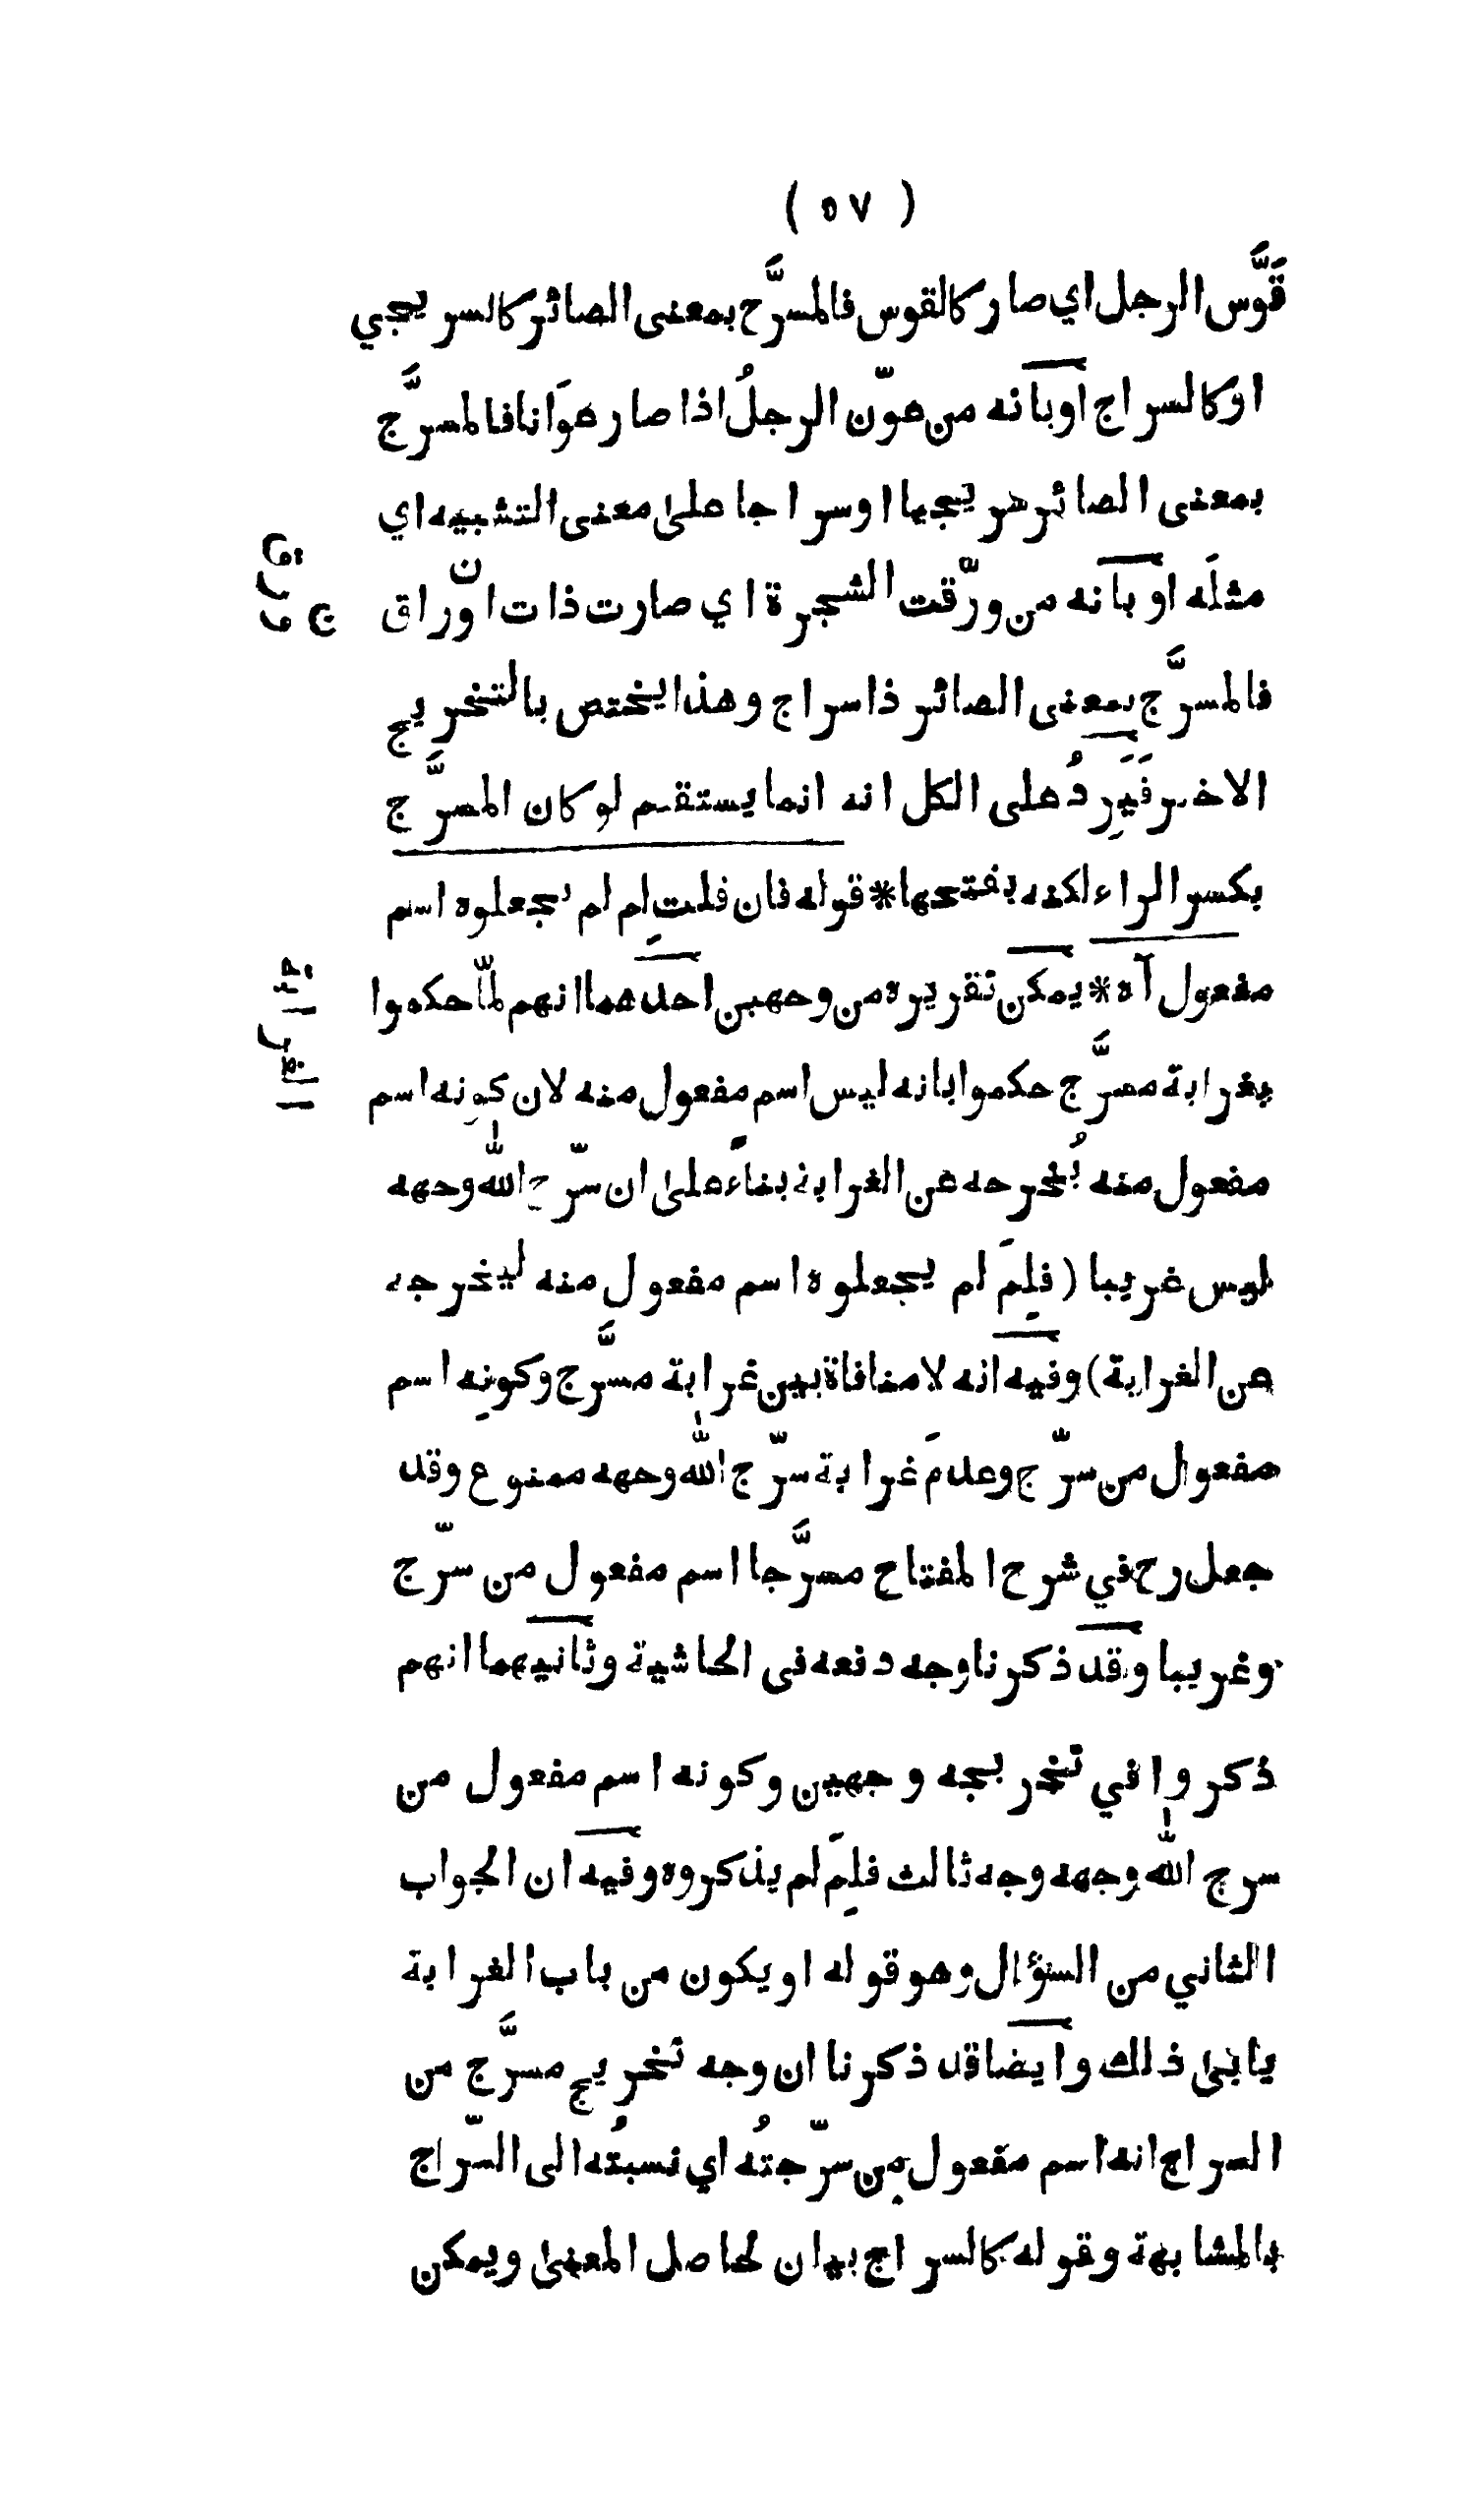 ( ٥٧ )
قَوَّس الرجل اي صار كالقوس فالمسرَّج بمعنى الصائر كالسريجي
او كالسراج او بانه من عوّن الرجلُ اذا صار عوَانا فالمسرَّج
بمعنى الصائر سريجيا او سراجا على معنى التشبيه اي
مثلَه او بانه من ورّقت الشجرة اي صارت ذات اوراق
فالمسرَّج بمعنى الصائر ذا سراج وهذا يختص بالتخريج
الاخير فَيَرِدُ على الكل انه انما يستقيم لو كان المسرَّج
بكسر الراء لكنه بفتحها * قوله فان قلت لِم لم يجعلوه اسم
مفعول آه * يمكن تقريره من وجهين احدهما انهم لمّا حكموا
بغرابة مسرَّج حكموا بانه ليس اسم مفعول منه لان كونه اسم
مفعول منه يُخرجه عن الغرابة بناءً على ان سرّج الله وجهه
ليس غريبا ( فلِمَ لم يجعلوه اسم مفعول منه ليخرجه
عن الغرابة ) وفيه انه لا منافاة بين غرابة مسرَّج وكونِه اسم
مفعول من سرّج وعدمَ غرابة سرّج الله وجهه ممنوع وقد
جعل رح في شرح المفتاح مسرَّجا اسم مفعول من سرّج
وغريبا وقد ذكرنا وجه دفعه فى الحاشية وثانيهما انهم
ذكروا في تخريجه وجهين وكونه اسم مفعول من
سرج الله وجهه وجه ثالث فلِمَ لم يذكروه وفيه ان الجواب
الثاني من السؤال وهو قوله او يكون من باب الغرابة
يابى ذلك وايضا قد ذكرنا ان وجه تخريج مسرَّج من
السراج انه اسم مفعول من سرّجتُه اي نسبتُه الى السّراج
بالمشابهة وقوله كالسراج بيان لحاصل المعنى ويمكن